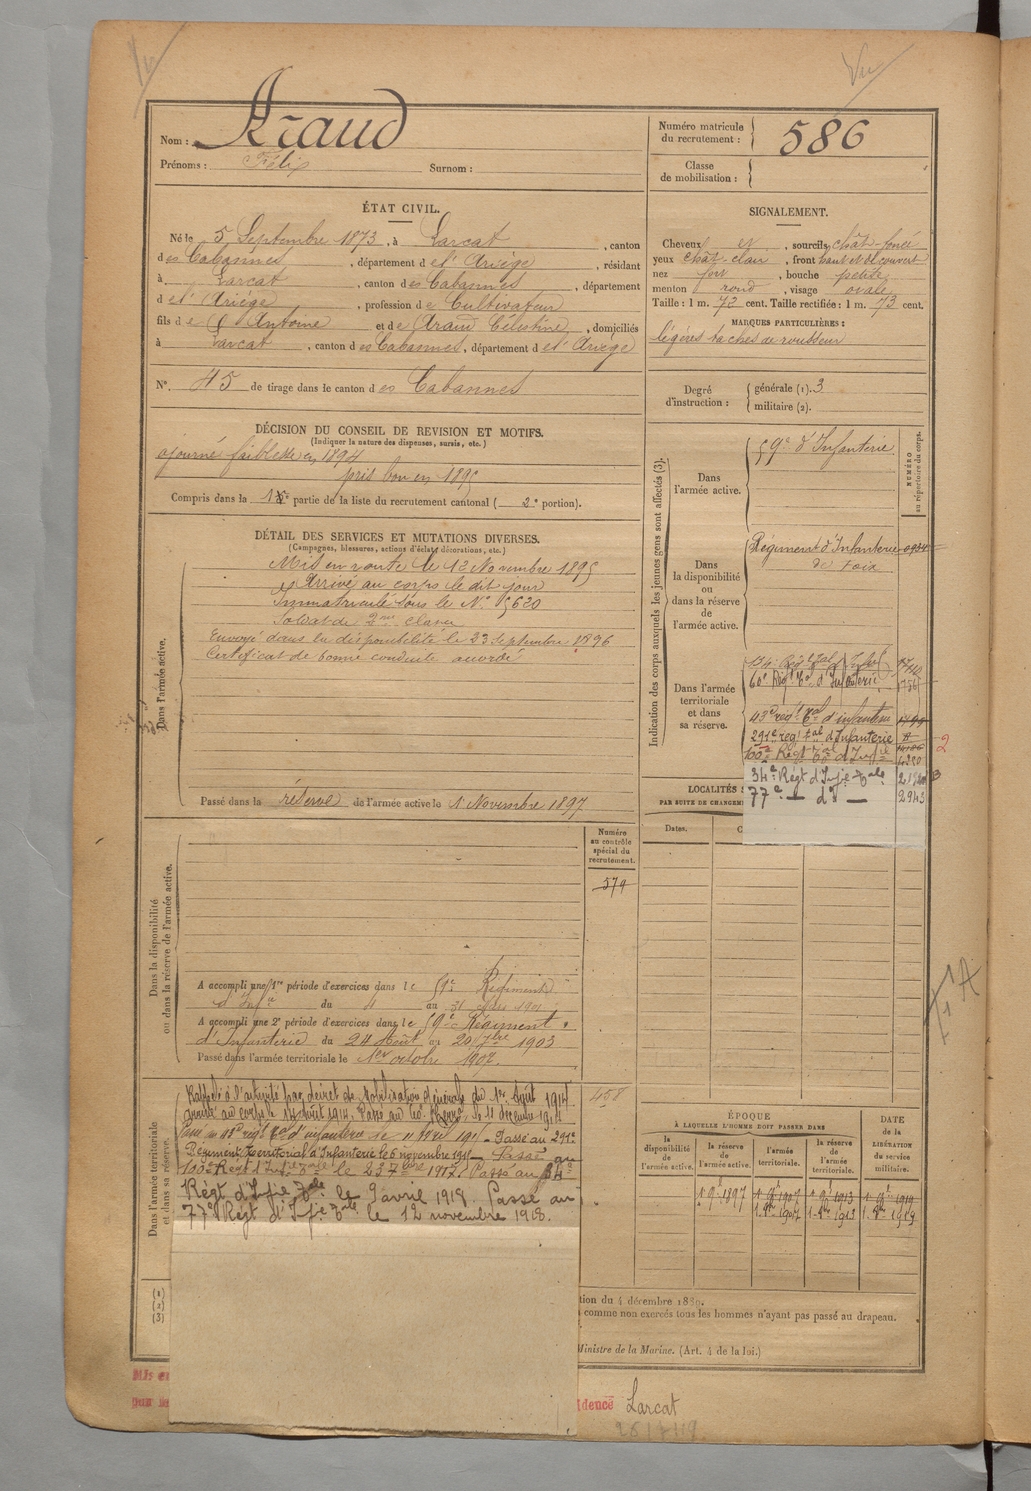 Vu
Nom : Araud
Prénoms : Félix Surnom :
Numéro matricule du recrutement : 586
Classe de mobilisation :
ÉTAT CIVIL.
Né le 5 Septembre 1873, à Larcat, canton
des Cabannes, département de l'Ariège, résidant
à Larcat, canton des Cabannes, département
de l'Ariège, profession de Cultivateur
fils de Antoine et de Araud Célestine, domiciliés
à Larcat, canton des Cabannes, département de l'Ariège
N° 45 de tirage dans le canton des Cabannes
SIGNALEMENT.
Cheveux et, sourcils chât-foncé
yeux chât-clair, front haut et découvert
nez fort, bouche petite
menton rond, visage ovale
Taille : 1 m. 72 cent. Taille rectifiée : 1 m. 73 cent.
MARQUES PARTICULIÈRES :
légères taches de rousseur
Degré d'instruction : générale (1). 3
militaire (2).
DÉCISION DU CONSEIL DE REVISION ET MOTIFS.
(Indiquer la nature des dispenses, sursis, etc.)
ajourné faiblesse en 1894
pris bon en 1895
Compris dans la partie de la liste du recrutement cantonal ( 2e portion).
DÉTAIL DES SERVICES ET MUTATIONS DIVERSES.
(Campagnes, blessures, actions d'éclat, décorations, etc.)
Dans l'armée active.
Mis en route le 12 Novembre 1895
Arrivé au corps le dit jour
Immatriculé sous le N° 5620
Soldat de 2me classe
Envoyé dans la disponibilité le 23 Septembre 1896
Certificat de bonne conduite accordé
Passé dans la réserve de l'armée active le 1 Novembre 1897
Indication des corps auxquels les jeunes gens sont affectés (3).
NUMÉRO au répertoire du corps.
Dans l'armée active.
59e d'Infanterie
Dans la disponibilité ou dans la réserve de l'armée active.
Régiment d'Infanterie
de Foix
Dans l'armée territoriale et dans sa réserve.
60e Régt Tal d'Infanterie
43e régt Tal d'infanterie
291e régt tal d'Infanterie
100e Régt Tal d'Infie
34e Régt d'Infie Tale
77e — do — 2943
2
LOCALITÉS
PAR SUITE DE CHANGEM
Dates.
Numéro au contrôle spécial du recrutement.
579
Dans la disponibilité ou dans la réserve de l'armée active.
A accompli une 1re période d'exercices dans le 59e Régiment
d'Infie du 4 au 31
A accompli une 2e période d'exercices dans le 59e Régiment
d'Infanterie du 24 Août au 20 7bre 1903
Passé dans l'armée territoriale le 1er octobre 1907.
Dans l'armée territoriale et dans sa réserve.
458
Rappelé à l'activité par décret de Mobilisation Générale du 1er Août 1914
arrivé au corps le 14 août 1914. Passé au 60e le 11 décembre 1914
Passé au 43e régt Tal d'infanterie le 11 avril 1915 - Passé au 291e
Régiment Territorial d'Infanterie le 6 novembre 1915 - Passé au
100e Régt d'Infie Tale le 23 7bre 1917. Passé au 34e
Régt d'Infie Tale le 9 avril 1918. Passé au
77e Régt d'Infie Tale le 12 novembre 1918.
ÉPOQUE
À LAQUELLE L'HOMME DOIT PASSER DANS
la disponibilité de l'armée active.
la réserve de l'armée active.
l'armée territoriale.
la réserve de l'armée territoriale.
DATE de la LIBÉRATION du service militaire.
1 9bre 1897 1 9bre 1907 1 9bre 1913 1 9bre 1919
1 8bre 1907 1 8bre 1913 1 8bre 1919
(1)
(2)
(3)
tion du 4 décembre 1889.
comme non exercés tous les hommes n'ayant pas passé au drapeau.
Ministre de la Marine. (Art. 4 de la loi.)
idence Larcat